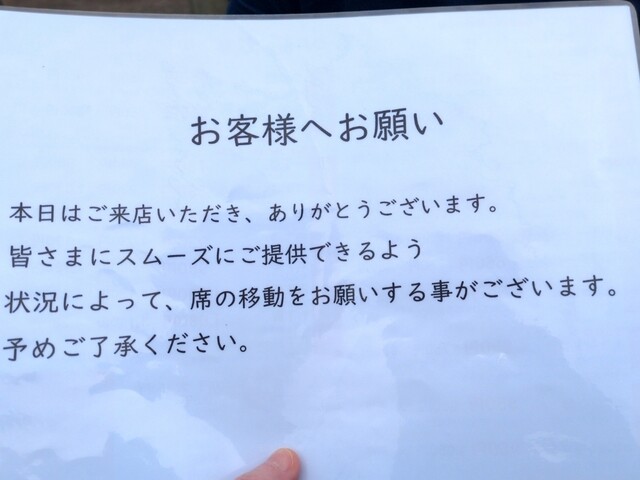 お客様へお願い
本日はご来店いただき、ありがとうございます。
皆さまにスムーズにご提供できるよう
状況によって、席の移動をお願いする事がございます。
予めご了承ください。